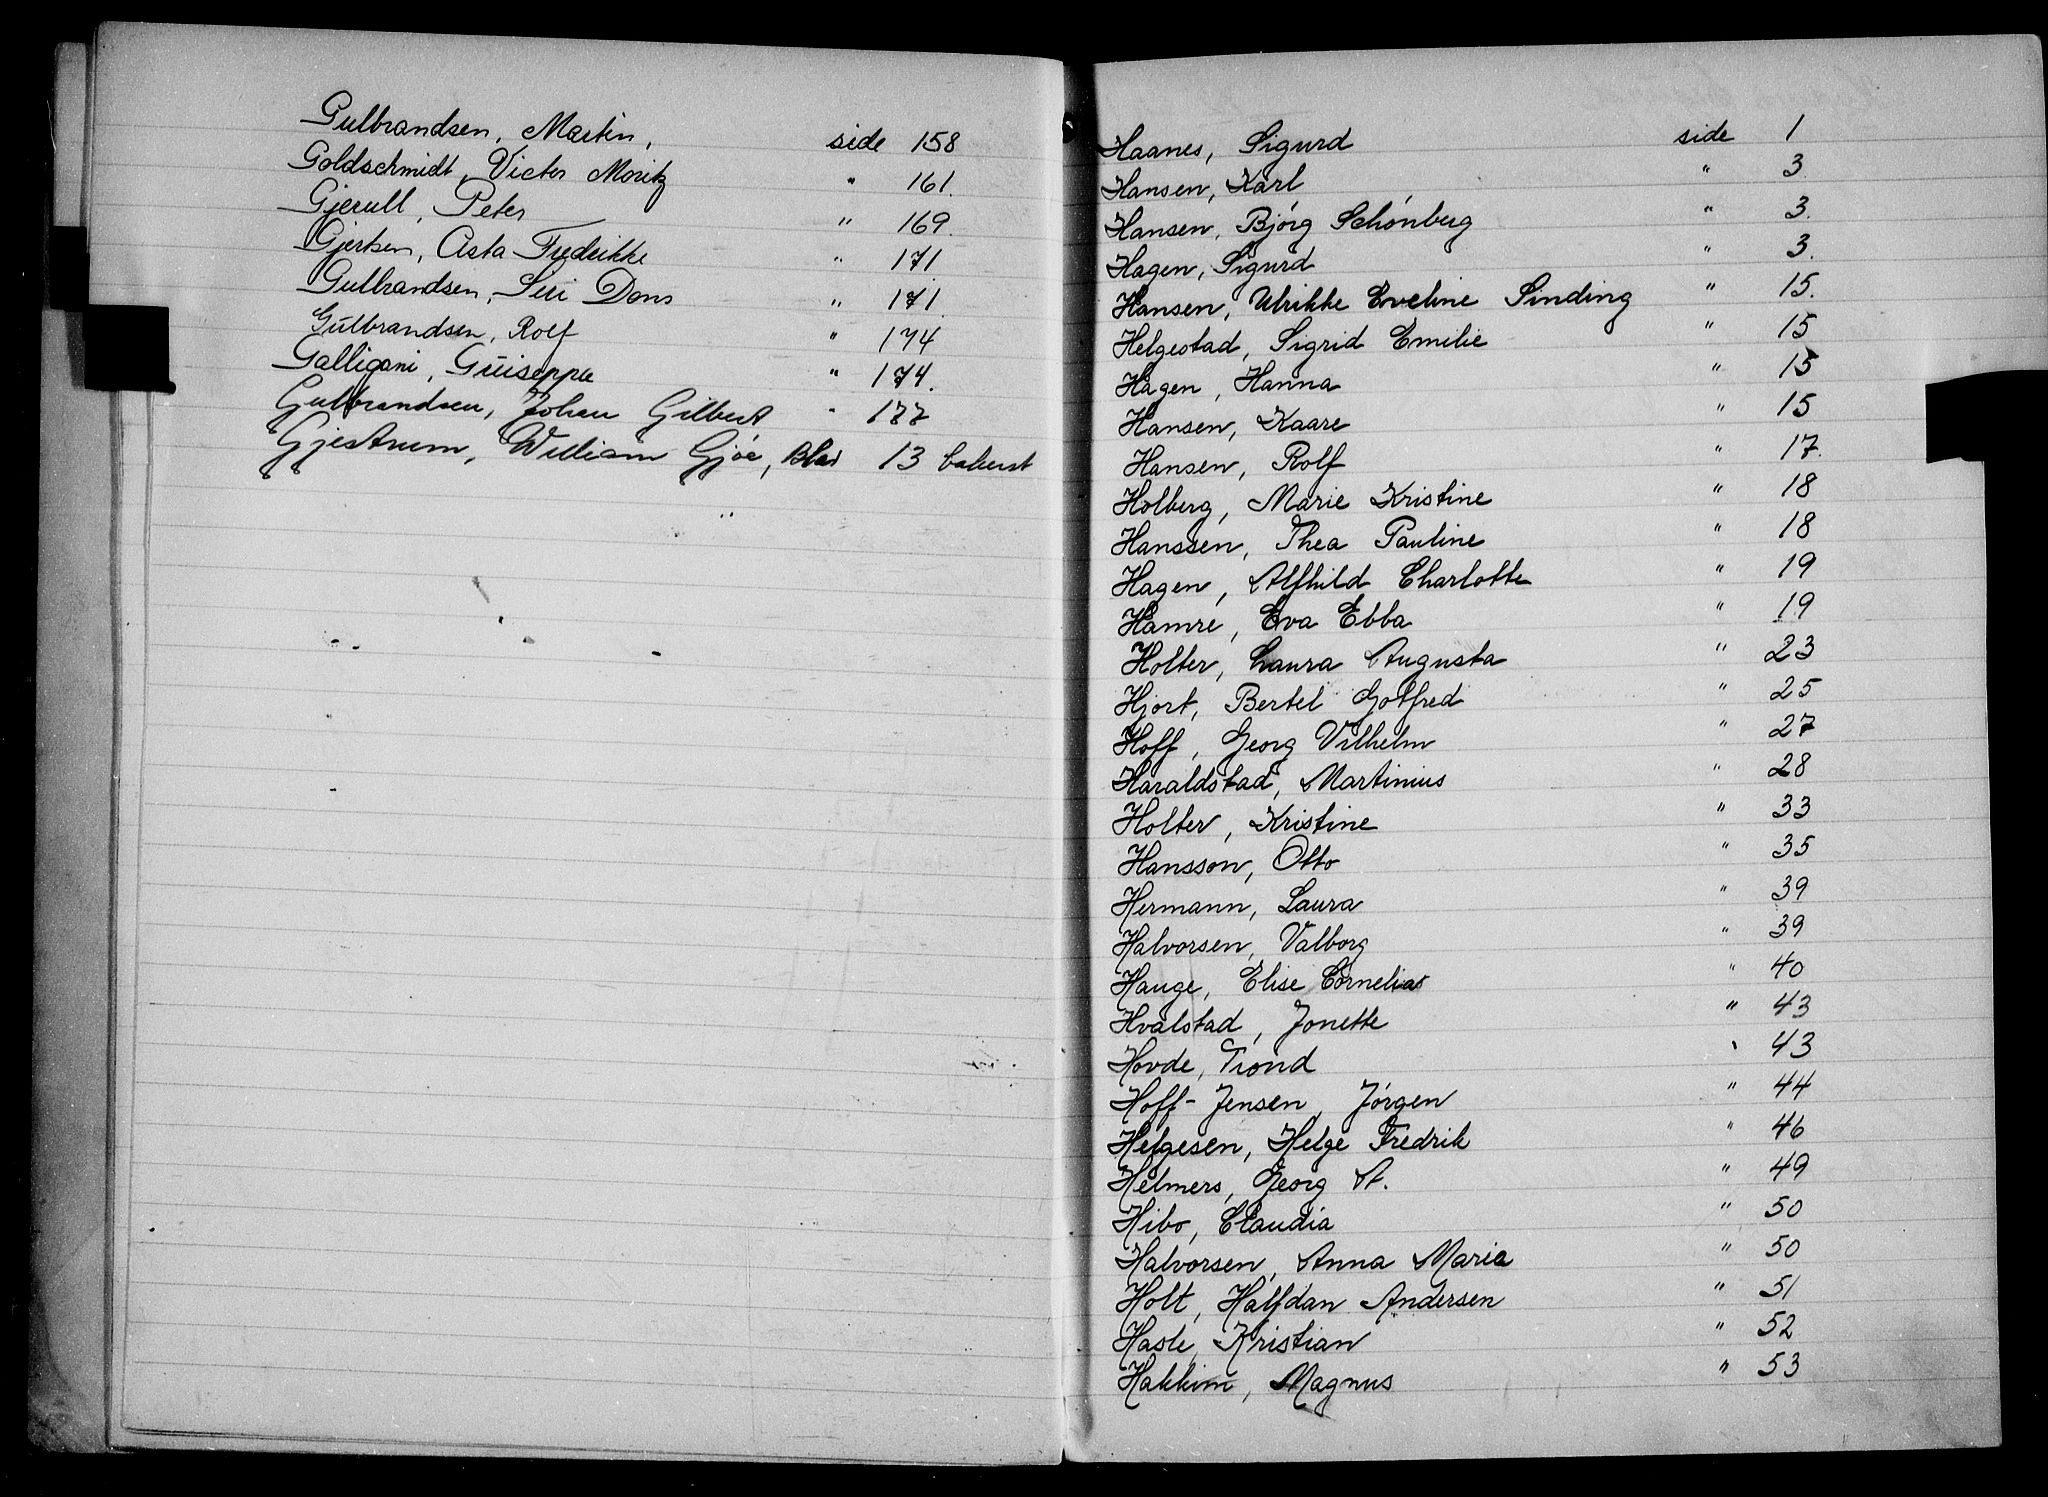 Gulbrandsen, Martin, side 158
Goldschmidt, Victor Moritz " 161.
Gjerull, Peter " 169.
Gjertsen, Asta Fredrikke " 171
Gulbrandsen, Siri Dons " 171.
Gulbrandsen, Rolf " 174
Galligani, Guiseppe " 174.
Gulbrandsen, Johan Gilbert " 177
Gjestrum, William Gjøe, Blad 13 bakerst
Haanes, Sigurd side 1
Hansen, Karl " 3
Hansen, Bjørg Schønberg " 3.
Hagen, Sigurd " 3.
Hansen, Ulrikke Eveline Sinding " 15.
Helgestad, Sigrid Emilie " 15
Hagen, Hanna " 15
Hansen, Kaare " 15
Hansen, Rolf " 17.
Holberg, Marie Kristine " 18
Hanssen, Thea Pauline " 18
Hagen, Alfhild Charlotte " 19
Hamre, Eva Ebba " 19
Holter, Laura Augusta " 23
Hjort, Bertel Gotfred " 25
Hoff, Georg Vilhelm " 27
Haraldstad, Martinius " 28
Holter, Kristine " 33
Hansson, Otto " 35
Hermann, Laura " 39
Halvorsen, Valborg " 39
Hauge, Elise Cornelia " 40
Hvalstad, Jonette " 43
Hovde, Trond " 43
Hoff-Jensen, Jørgen " 44
Helgesen, Helge Fredrik " 46
Helmers, Georg A. " 49
Hibo, Claudia " 50
Halvorsen, Anna Marie " 50
Holt, Halfdan Andersen " 51
Hasle, Kristian " 52
Hakkim, Magnus " 53